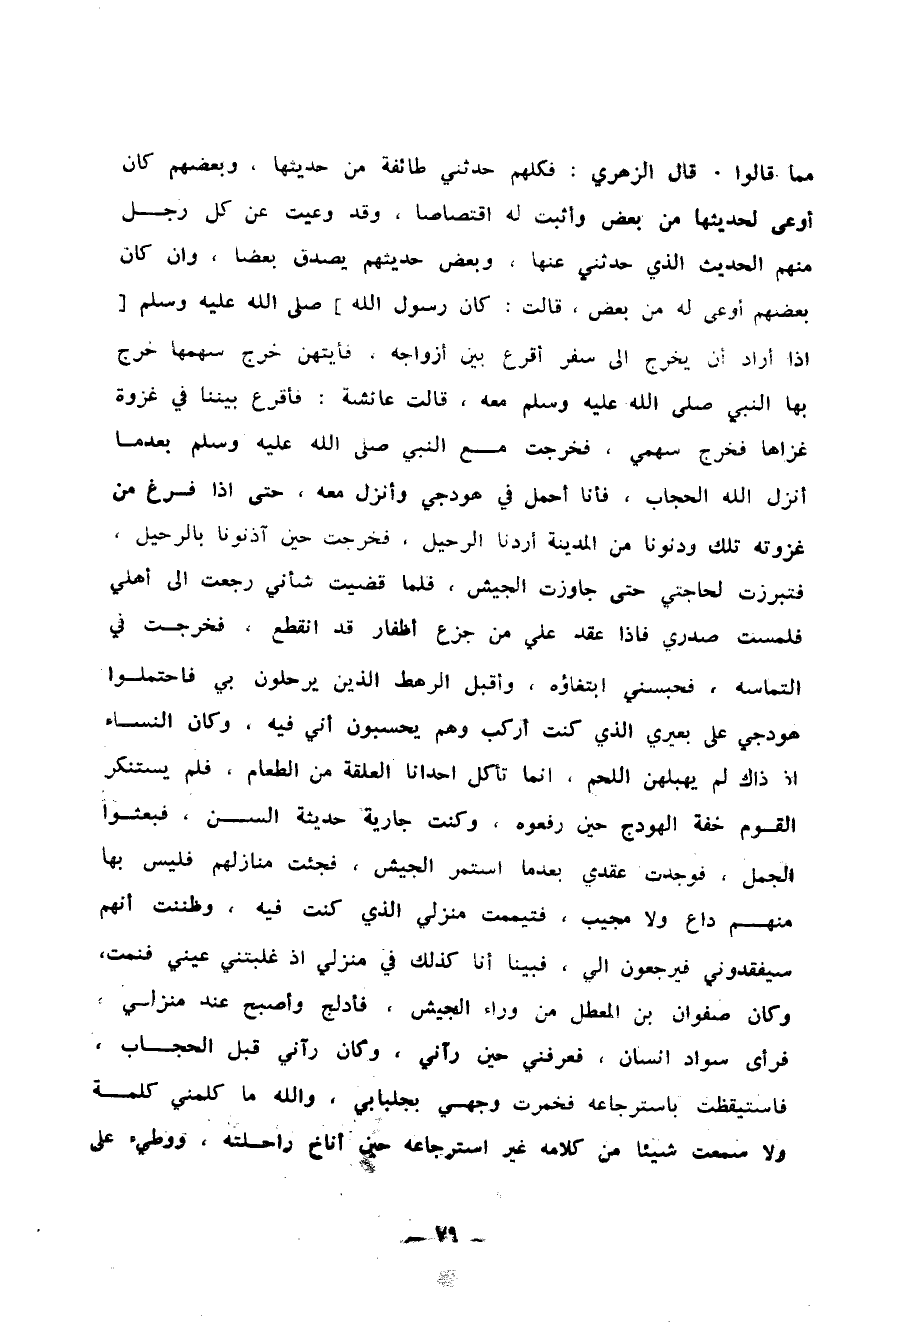 مما قالوا ٠ قال الزهري : فكلهم حدثني طائفة من حديثها ، وبعضهم كان
أوعى لحديثها من بعض وأثبت له اقتصاصا ، وقد وعيت عن كل رجل
منهم الحديث الذي حدثني عنها ، وبعض حديثهم يصدق بعضا ، وان كان
بعضهم أوعى له من بعض ، قالت : كان رسول الله ] صلى الله عليه وسلم [
اذا أراد أن يخرج الى سفر أقرع بين أزواجه ، فأيتهن خرج سهمها خرج
بها النبي صلى الله عليه وسلم معه ، قالت عائشة : فأقرع بيننا في غزوة
غزاها فخرج سهمي ، فخرجت مع النبي صلى الله عليه وسلم بعدما
أنزل الله الحجاب ، فأنا أحمل في هودجي وأنزل معه ، حتى اذا فرغ من
غزوته تلك ودنونا من المدينة أردنا الرحيل ، فخرجت حين آذنونا بالرحيل ،
فتبرزت لحاجتي حتى جاوزت الجيش ، فلما قضيت شأني رجعت الى أهلي
فلمست صدري فاذا عقد علي من جزع أظفار قد انقطع ، فخرجت في
التماسه ، فحبسني ابتغاؤه ، وأقبل الرهط الذين يرحلون بي فاحتملوا
هودجي على بعيري الذي كنت أركب وهم يحسبون أني فيه ، وكان النساء
اذ ذاك لم يهبلهن اللحم ، انما تأكل احدانا العلقة من الطعام ، فلم يستنكر
القوم خفة الهودج حين رفعوه ، وكنت جارية حديثة السن ، فبعثوا
الجمل ، فوجدت عقدي بعدما استمر الجيش ، فجئت منازلهم فليس بها
منهم داع ولا مجيب ، فتيممت منزلي الذي كنت فيه ، وظننت أنهم
سيفقدوني فيرجعون الي ، فبينا أنا كذلك في منزلي اذ غلبتني عيني فنمت،
وكان صفوان بن المعطل من وراء الجيش ، فأدلج وأصبح عند منزلي ،
فرأى سواد انسان ، فعرفني حين رآني ، وكان رآني قبل الحجاب ،
فاستيقظت باسترجاعه فخمرت وجهي بجلبابي ، والله ما كلمني كلمة
ولا سمعت شيئا من كلامه غير استرجاعه حين أناخ راحلته ، ووطيء على
ـ ٧٩ ـ